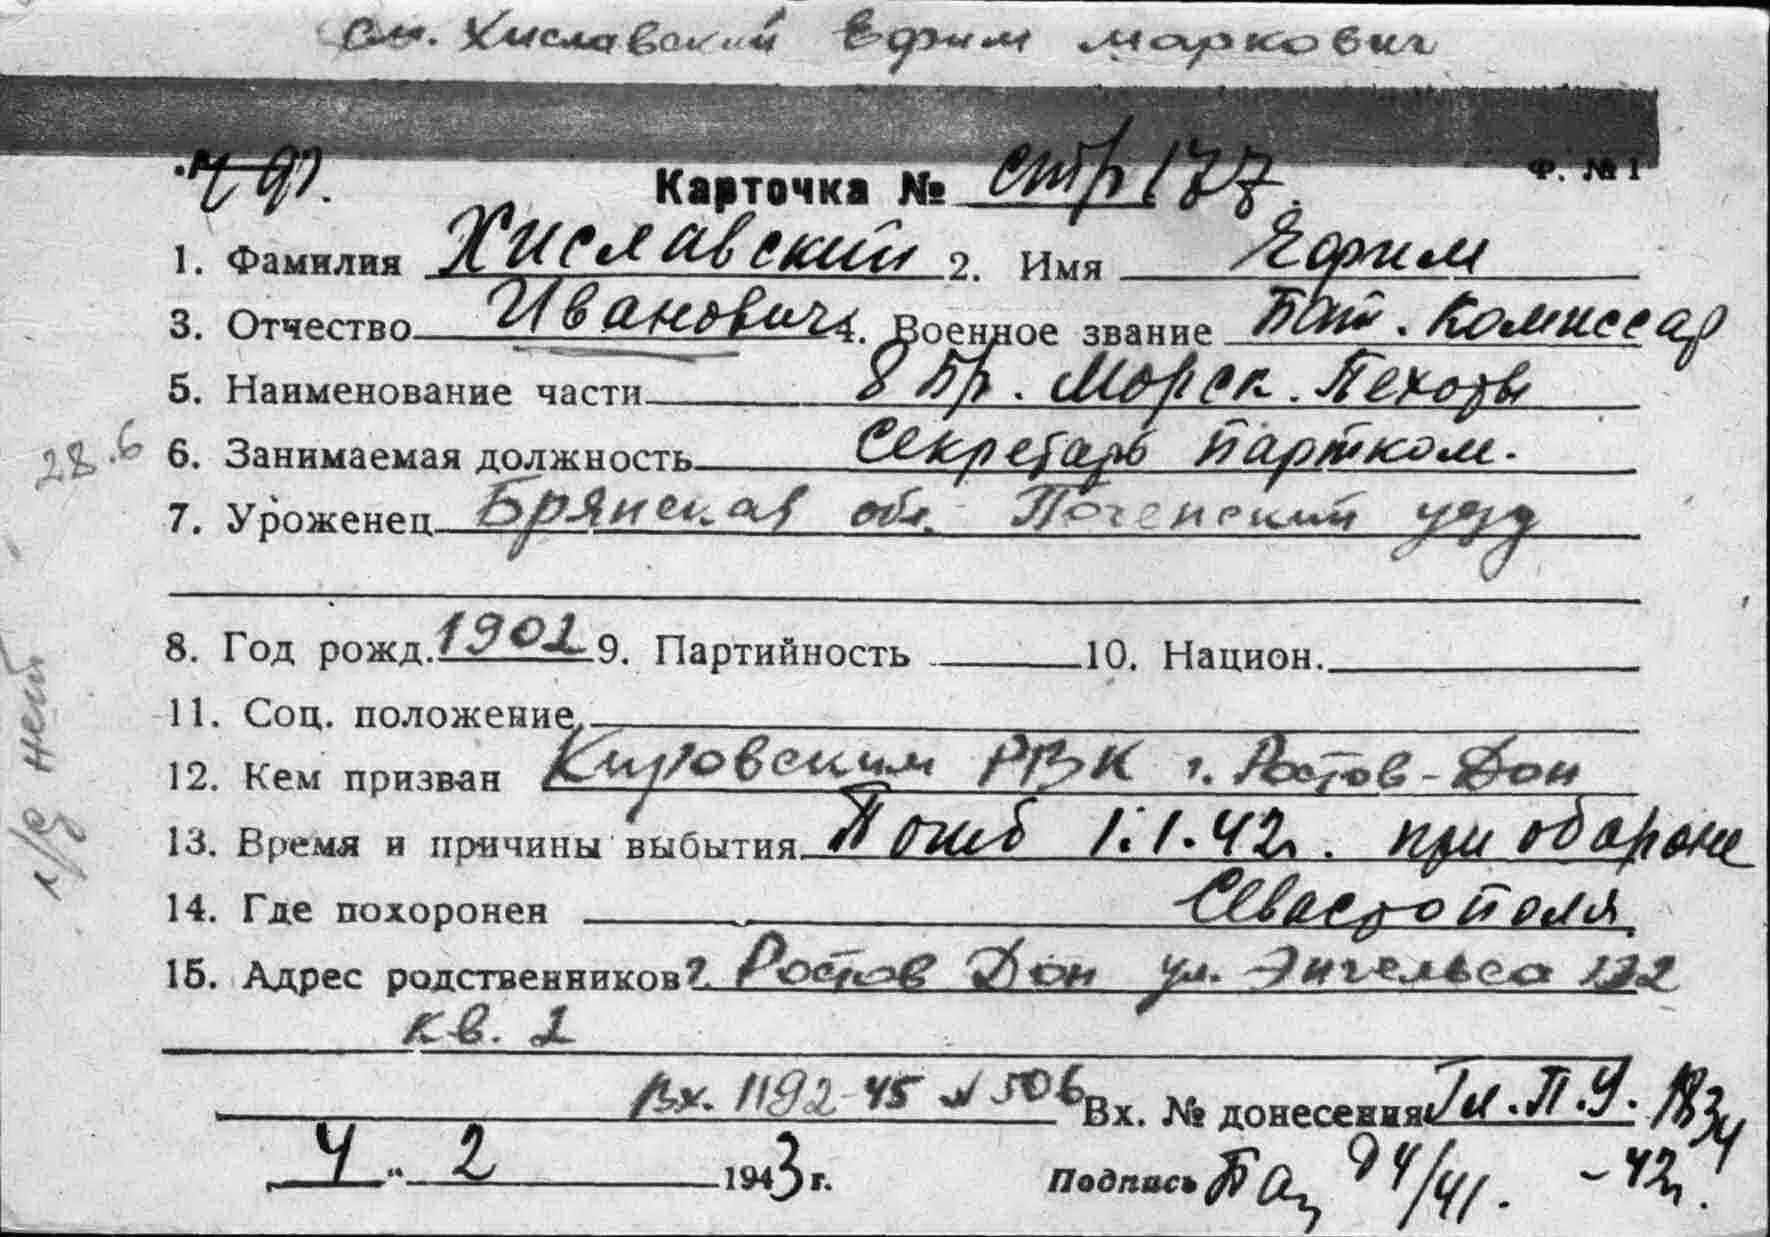 см. Хиславский Ефим Маркович
Ф. № 1
Карточка № стр 177.
1. Фамилия Хиславский 2. Имя Ефим
3. Отчество Иванович 4. Военное звание Бат. Комиссар
5. Наименование части 8 Бр. Морск. Пехоты
28.6
6. Занимаемая должность Секретарь партком.
7. Уроженец Брянская обл. Поченский уезд
8. Год рожд. 1902 9. Партийность 10. Национ.
11. Соц. положение
л/д нет
12. Кем призван Кировским РВК г. Ростов-Дон
13. Время и причины выбытия Погиб 1.1.42г. при обороне
14. Где похоронен Севастополя
15. Адрес родственников г. Ростов Дон ул. Энгельса 132
кв. 2
Вх. 1192-45 № 506 Вх. № донесения Гл.П.У. 1834
4 " 2 1943 г. Подпись 94/41. -42г.